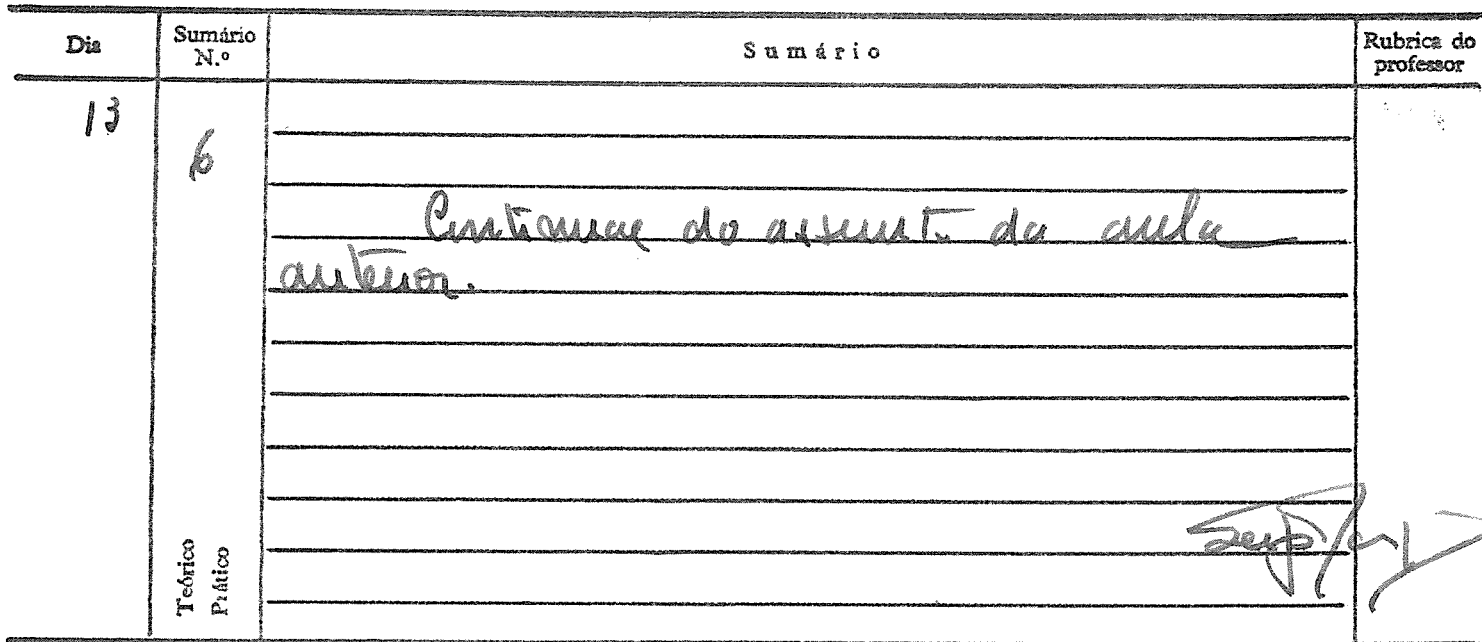 Dia
Sumário N.º
Sumário
Rubrica do professor
13
6
Continuação do assunto da aula
anterior.
Teórico
Prático